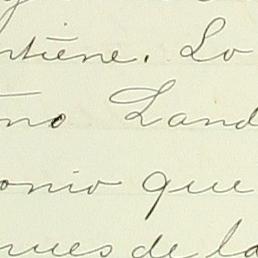 ntiene. Lo
no Land
onio que
nues de la